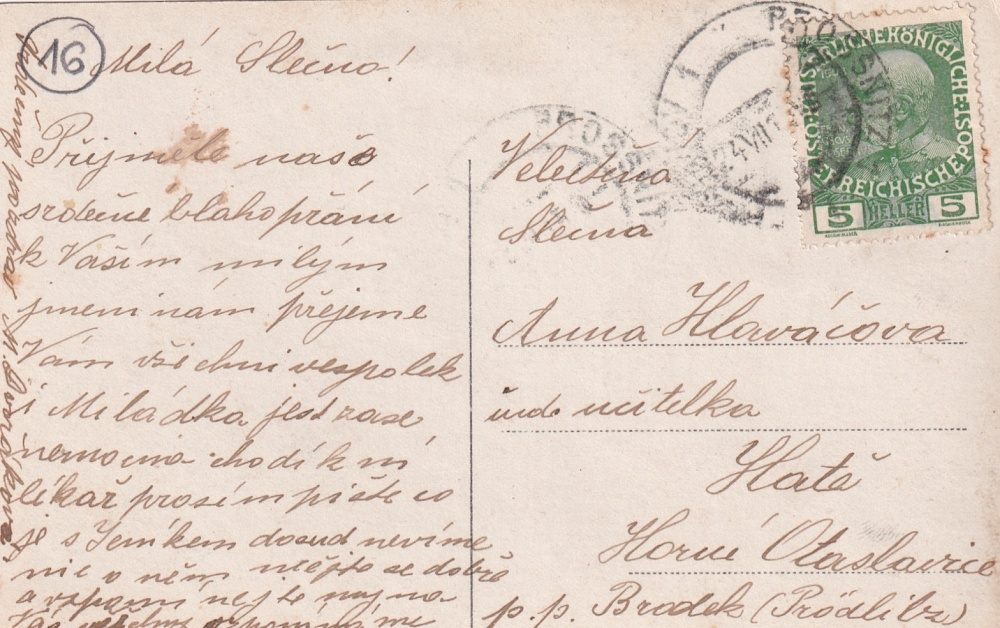 16
Milá Slečno!
Přijměte naše
srdečné blahopřání
k Vaším milým
jmeninám přejeme
Vám všichni vespolek
i Miládka jest zase
nemocna chodí k ní
lékař prosím pište co
je s Jeníkem dosud nevíme
nic o něm mějte se dobře
a
Vás
pozdrav M. Dvořáková
PROSSNITZ
24 VII 1
PROSSNITZ
KAISERLICHE KÖNIGLICHE
ÖSTERREICHISCHE POST
5 HELLER 5
Velectěná
Slečna
Anna Hlaváčova
ind. učitelka
Hatě
Horní Otaslavice
p. p. Brodek (Prödlitz)